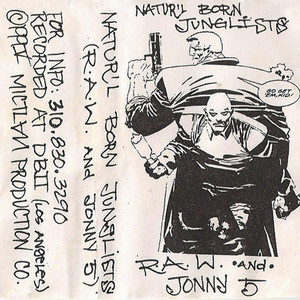 FOR INFO: 310.830.3290
RECORDED AT DBII (LOS ANGELES)
NATUR'L BORN JUNGLISTS
(R.A.W. AND JONNY 5)
NATUR'L BORN
JUNGLISTS
GO GET
'EM, KID!
R.A.W. AND
JONNY 5